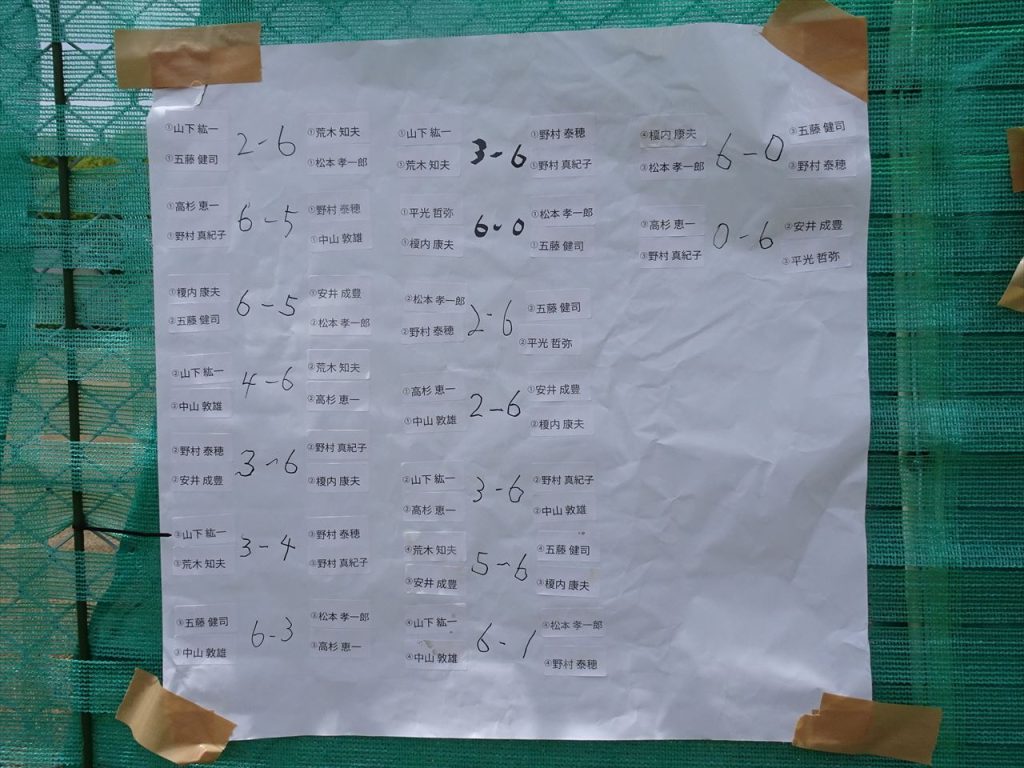 ①山下 紘一
①五藤 健司
2-6
①荒木 知夫
①松本 孝一郎
①高杉 恵一
①野村 真紀子
6-5
①野村 泰穂
①中山 敦雄
①榎内 康夫
②五藤 健司
6-5
①安井 成豊
②松本 孝一郎
②山下 紘一
②中山 敦雄
4-6
②荒木 知夫
②高杉 恵一
②野村 泰穂
②安井 成豊
3-6
②野村 真紀子
②榎内 康夫
③山下 紘一
③荒木 知夫
3-4
③野村 泰穂
③野村 真紀子
③五藤 健司
③中山 敦雄
6-3
③松本 孝一郎
③高杉 恵一
①山下 紘一
①荒木 知夫
3-6
①野村 泰穂
①野村 真紀子
①平光 哲弥
①榎内 康夫
6-0
①松本 孝一郎
①五藤 健司
②松本 孝一郎
②野村 泰穂
2-6
②五藤 健司
②平光 哲弥
①高杉 恵一
①中山 敦雄
2-6
①安井 成豊
②榎内 康夫
②山下 紘一
②高杉 恵一
3-6
②野村 真紀子
②中山 敦雄
④荒木 知夫
③安井 成豊
5-6
④五藤 健司
③榎内 康夫
④山下 紘一
④中山 敦雄
6-1
④松本 孝一郎
④野村 泰穂
④榎内 康夫
③松本 孝一郎
6-0
③五藤 健司
③野村 泰穂
③高杉 恵一
③野村 真紀子
0-6
②安井 成豊
③平光 哲弥